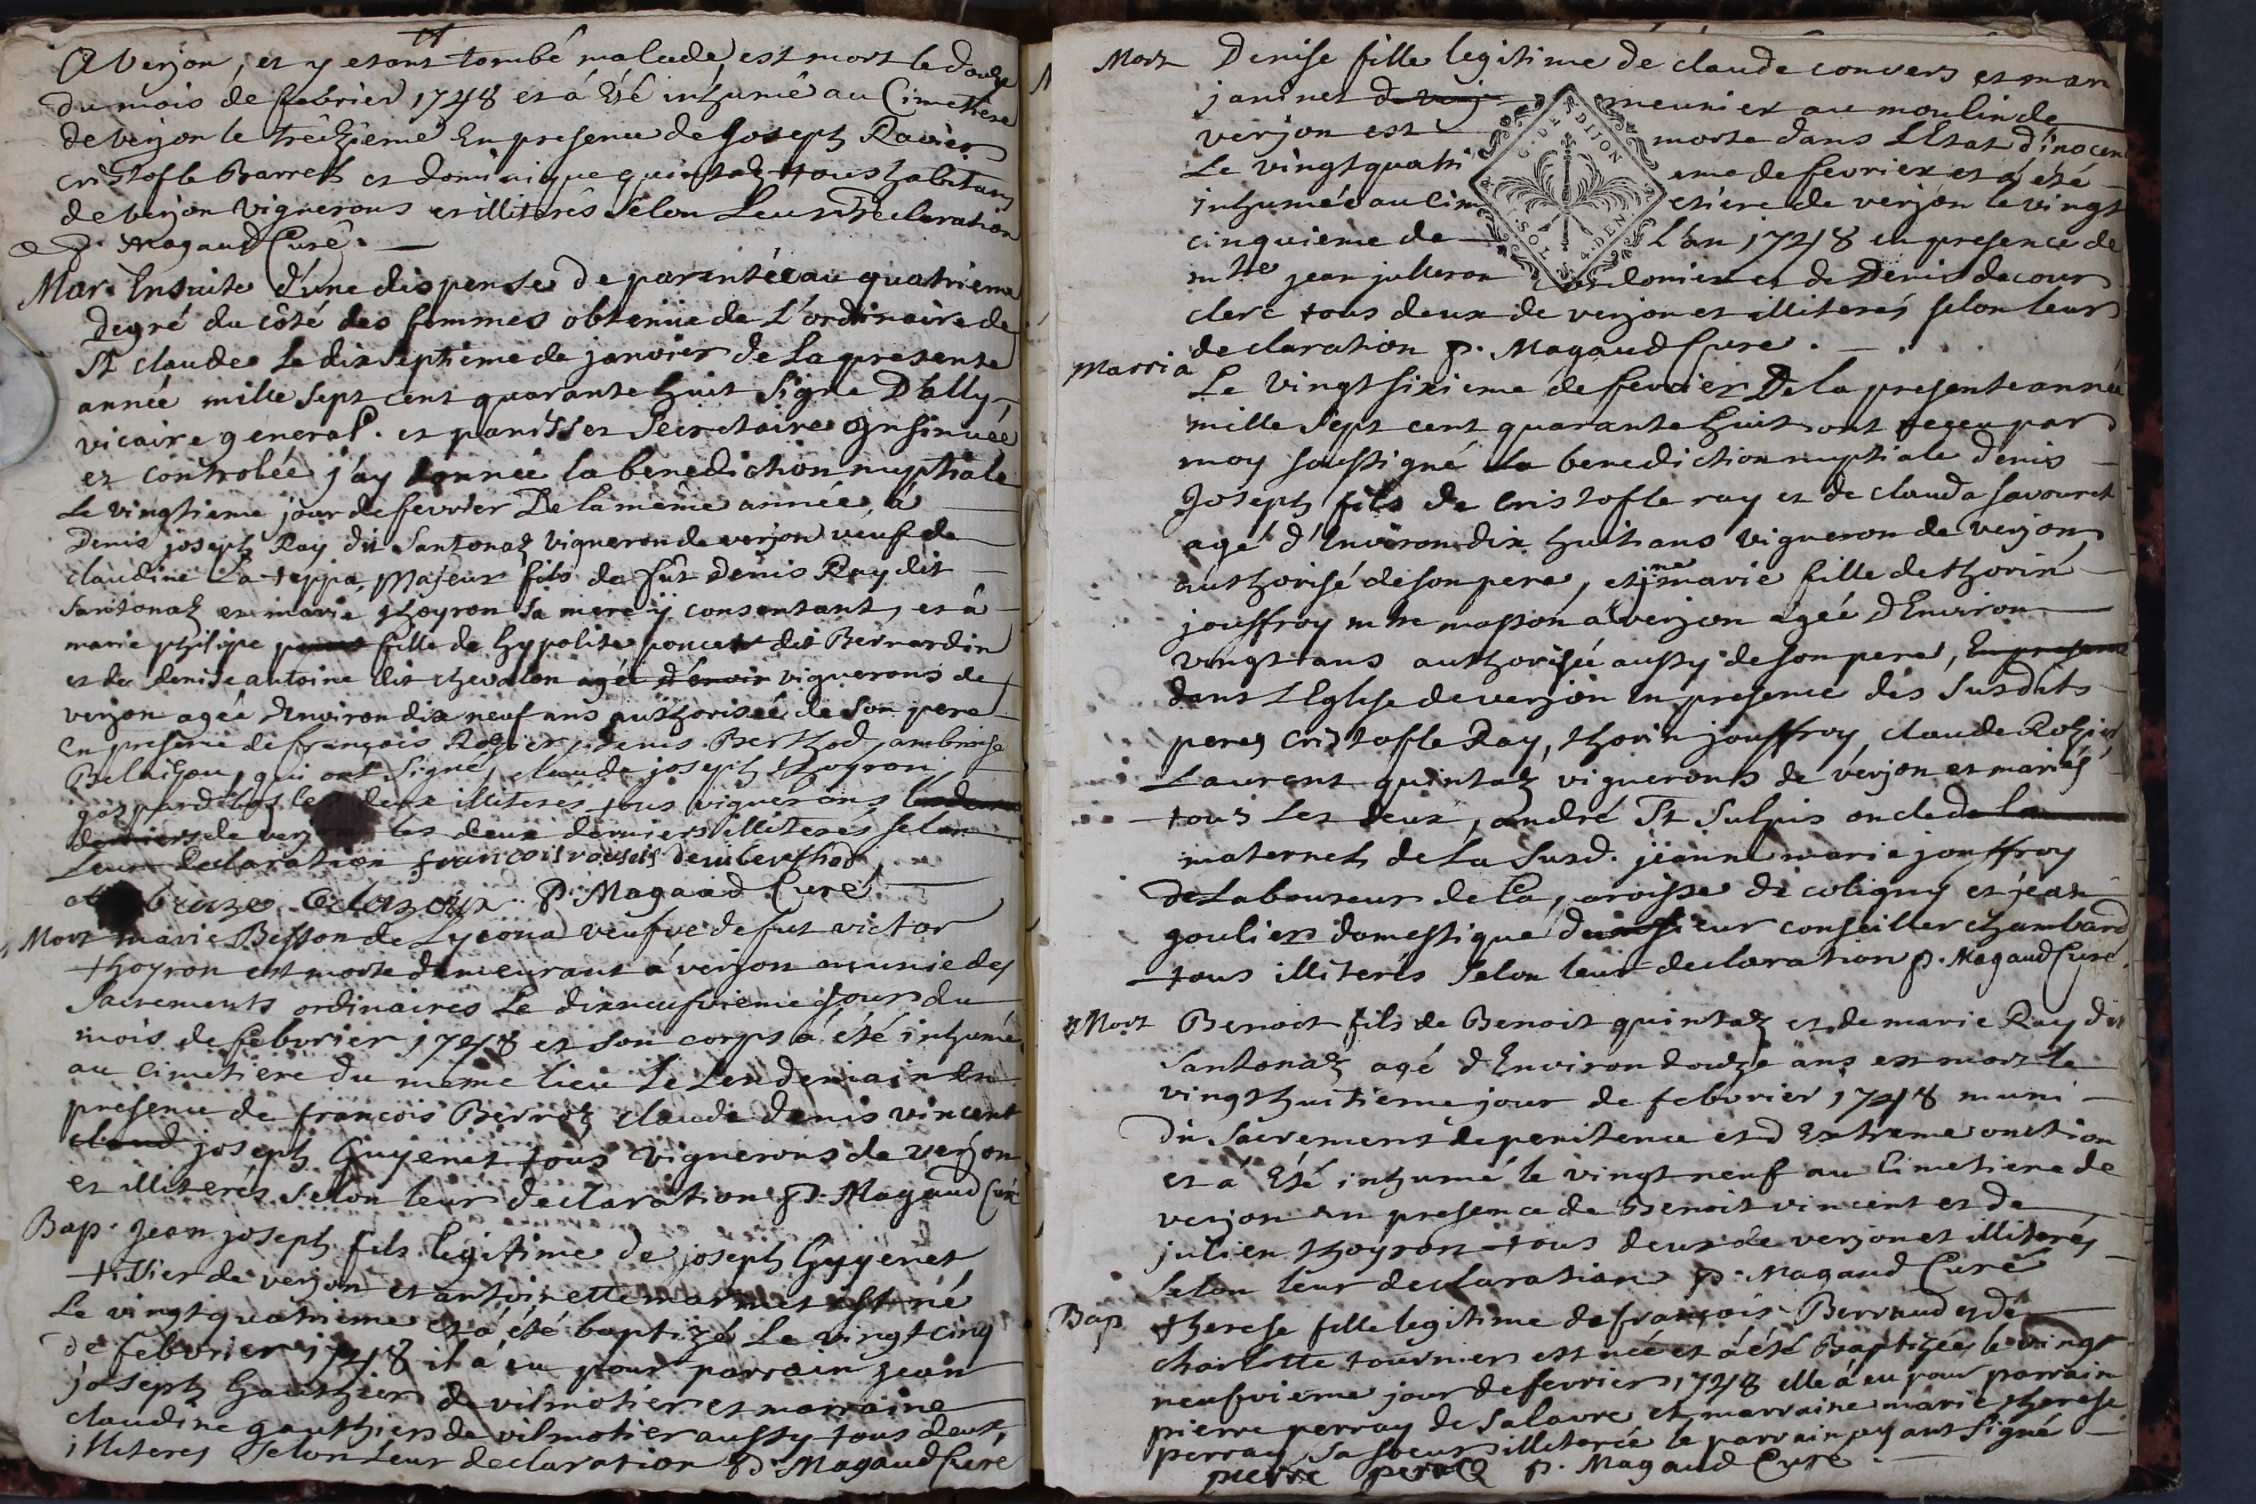 A Verjon, et y etant tombé malade est mort le douze
du mois de febvrier 1748 et á Eté inhumé au Cimethiere
de verjon le treiziéme En presence de Joseph Ravier
cristofle Barrelt et dominique quintaz tous habitans
de verjon vignerons et illiterés selon Leur declaration
P. Magaud Curé.
Mar. Ensuite d'une dispense de parentée au quatrieme
degré du côté des femmes obtenüe de L'ordinaire de
St claude Le dix septiéme de janvier de La presente
année mille sept cent quarante huit signé D'ally
vicaire general. et panisset Secretaire insinuée
et controlée j'ay donnée la benediction nuptiale
Le vingtieme jour de fevrier De la même année, á
Denis joseph Ray dit Santonaz vigneron de verjon veuf de
claudine La teppa, Majeur fils de fût Denis Ray dit
Santonaz et marie thoyron sa mere ÿ consentant, et á
marie philipe fille de hypolite poncet dit Bernardin
et de denise antoine dit chevalon agée d'envir vignerons de
verjon agée d'Environ dix neuf ans authorisée de son pere
en presence de françois Rozier, denis Berthod, ambroise
qui ont signé, claude joseph thoyron
gaspard les deux illiterés tous vignerons
derniers de verjon les deux derniers illiterés selon
Leur declaration francois denis berthod
P. Magaud Curé
Mort marie Besson de Lyconna veufve de fut victor
thoyron est morte demeurant á verjon munie des
Sacrements ordinaires Le dixneufvieme jour du
mois de febvrier 1748 et son corps á été inhumé
au cimetiere du meme lieu Le Lendemain En
presence de francois Berroz claude denis vincent
claud joseph Guyenet tous vignerons de verjon
et illiterés selon leur declaration P. Magaud Curé
Bap. Jean joseph fils legitime de joseph Guyenet
tissier de verjon et antoinette marmet est né
Le vingt quatrieme et á été baptizé Le vingt cinq
de febvrier 1748 il á eu pour parrain jean
joseph Gauthier de vilmotier et marraine
claudine gauthier de vilmotier aussy tous deux
illiterés selon Leur declaration P. Magaud Curé
Mort Denise fille legitime de claude convers et mari
janinet de verj meunier au moulin de
verjon est morte dans L'Etat d'inocen
Le vingt quatri eme de fevrier et á été
inhumée au cim etiére de verjon le vingt
cinquieme de L'an 1748 en presence de
mtre jean julleron cordonier et de Denis decour
clerc tous deux de verjon et illiterés selon leur
declaration P. Magaud Cure.
Marria Le Vingt sixieme de fevrier De la presente année
mille sept cent quarante huit ont reçeu par
moy soussigné la benediction nuptiale denis
Joseph fils de Cristofle ray et de clauda savouret
agé d'Environ dix huit ans vigneron de verjon
authorisé de son pere, et jne marie fille de thorin
jouffroy mtre masson a verjon agée d'Environ
vingt ans authorisée aussy de son pere, En presence
dans L'Eglise de verjon En presence des susdits
peres cristofle Ray, thorin jouffroy, claude Rozier
Laurent quintaz vignerons de verjon et mariés
tous Les deux, andré St Sulpis oncle de la
maternel de La susd. jeanne marie jouffroy
de Laboureur de La paroisse de coligny et jean
goulier domestique de monsieur conseiller chambard
tous illiterés selon leur declaration P. Magaud Curé.
Mort Benoit fils de Benoit quintaz et de marie Ray dit
Santonaz agé d'Environ douze ans est mort le
vingt huitieme jour de febvrier 1748 muni
du Sacrement de penitence et d'Extreme onction
et á Eté inhumé le vingt neuf au Cimetiere de
verjon En presence de Benoit vincent et de
julien thoyron tous deux de verjon et illiterés
selon leur declaration P. Magaud Curé
Bap therese fille legitime de françois Berraud et de
charlotte tournier est née et á été Baptizée le vingt
neufvieme jour de fevrier 1748 elle á eu pour parrain
pierre perray de Salavre et marraine marie therese
perray sa soeur illiterée le parrain ayant signé
pierre P. Magaud Curé.
G. DE DIJON
SOL
4. DEN